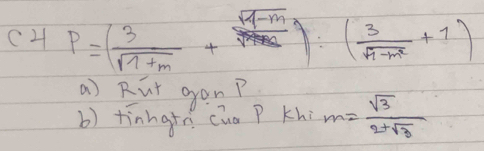 C4 P = (3/√1+m + √1-m) : (3/√1-m² + 1)
a) Rút gọn P
b) tínhgtrị của P khi m = √3/2+√3